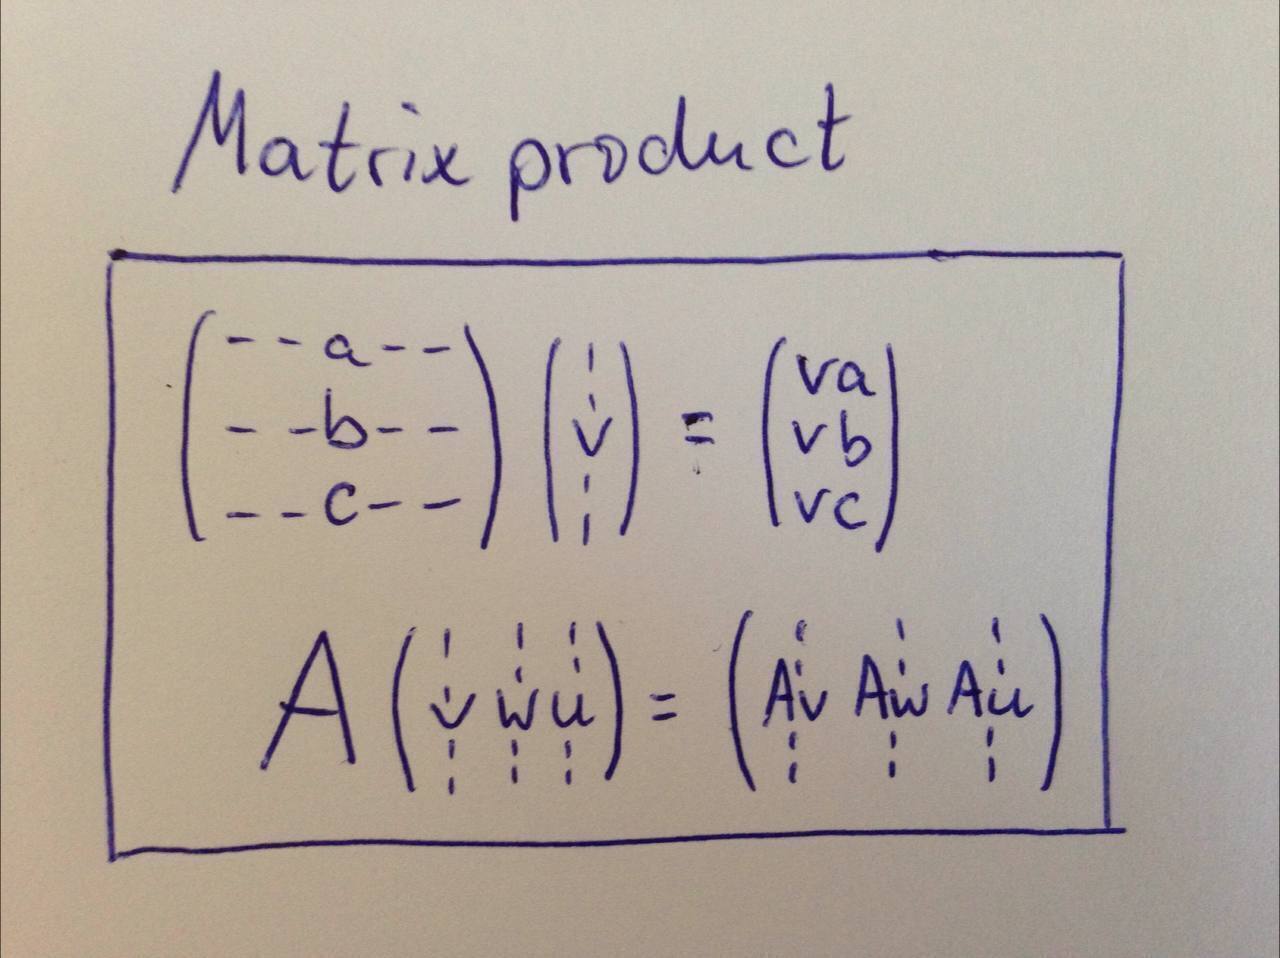 Matrix product
( - - a - - ) ( ¦ ) = ( va )
( - - b - - ) ( v ) ( vb )
( - - c - - ) ( ¦ ) ( vc )
A ( v w u ) = ( Av Aw Au )